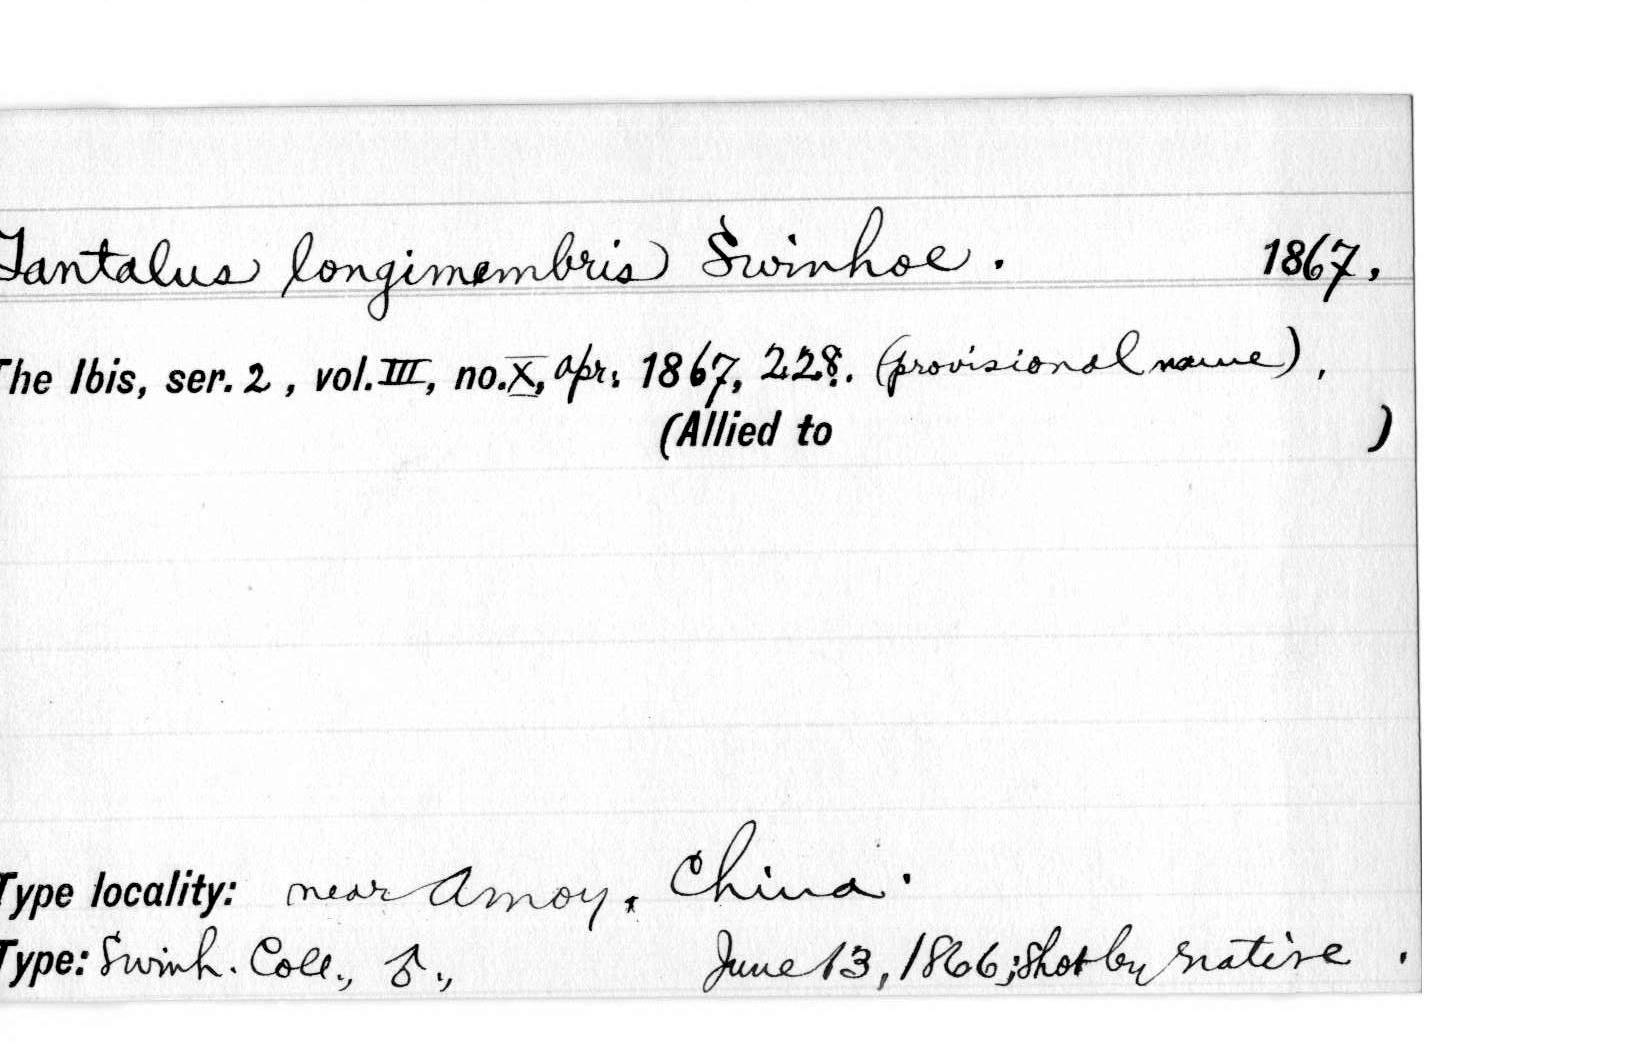 Tantalus longimembris Swinhoe. 1867.
The Ibis, ser. 2, vol. III, no. X, Apr. 1867, 228. (provisional name),
(Allied to )
Type locality: near Amoy, China.
Type: Swinh. Coll., ♂., June 13, 1866; shot by native.